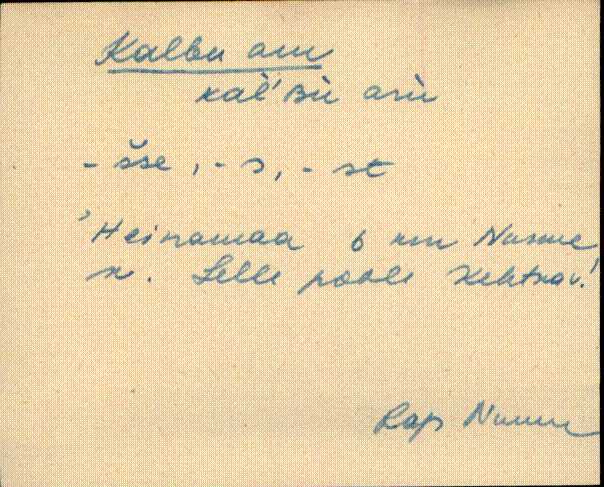 Kalbu aru
kal'ʙù arù
- šse, - s, - st
'Heinamaa 6 km Nurme
k. Lelle poole Kehtnav.'
Rap Nurme